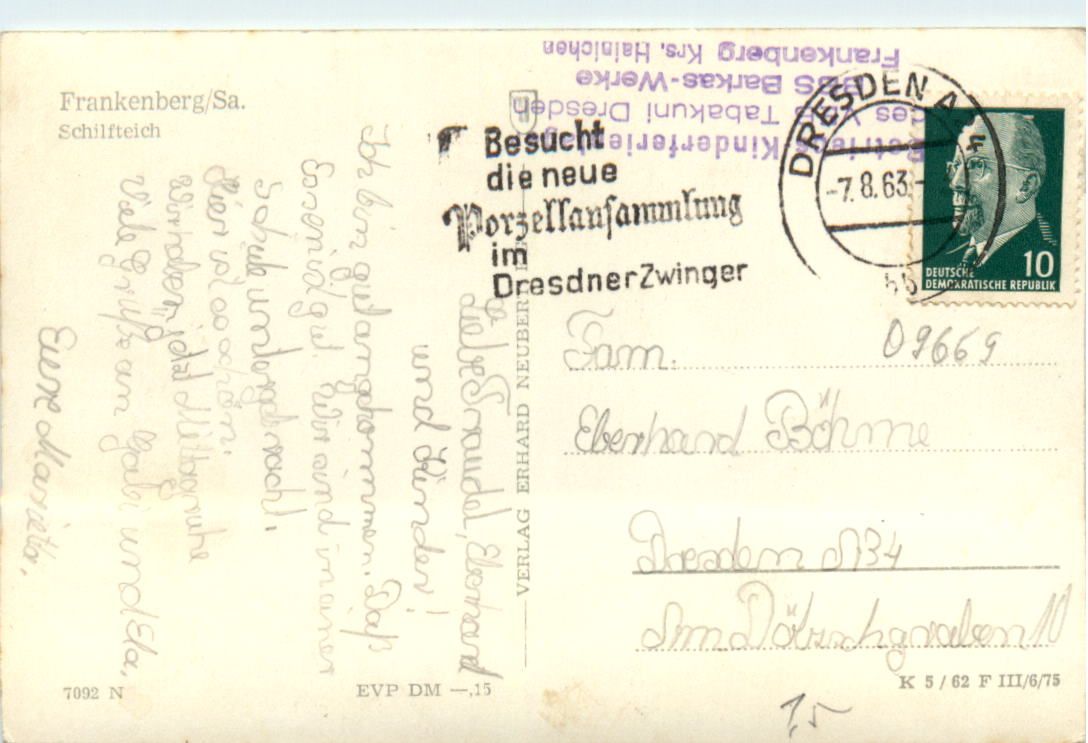 Frankenberg/Sa.
Schilfteich
Liebe Traudel, Eberhard
und Kinder!
Ich bin gut angekommen. Das
Essen ist gut. Wir sind in einer
Schule untergebracht.
Hier ist es schön.
Wir haben jetzt Mittagsruhe
Viele Grüße an Gabi und Ela,
Eure Marietta,
7092 N
EVP DM —,15
VERLAG ERHARD NEUBERT
Betriebs-Kinderferienlager
des VEB Tabakuni Dresden
BBS Barkas-Werke
Frankenberg Krs. Hainichen
Besucht
die neue
Porzellansammlung
im
Dresdner Zwinger
DRESDEN A
-7.8.63.-
DEUTSCHE
DEMOKRATISCHE REPUBLIK
10
09669
Fam.
Eberhard Böhme
Dresden A34
Am Dölzschgraben 10
K 5/62 F III/6/75
1,5